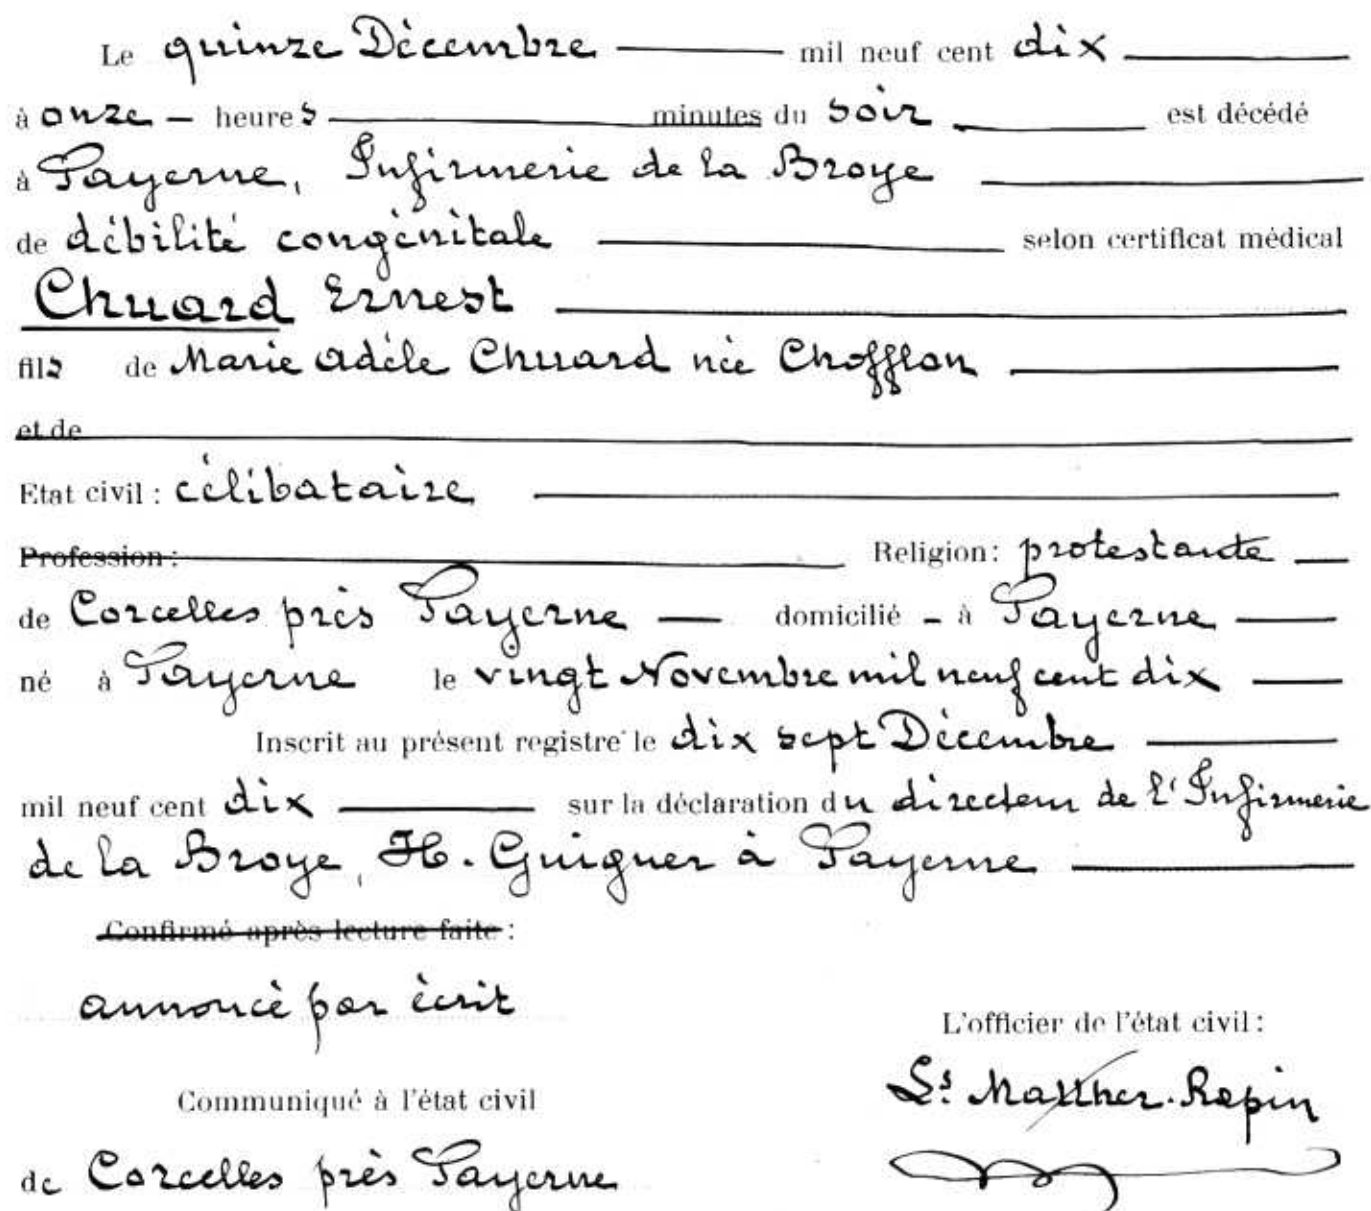 Le quinze Décembre mil neuf cent dix
à onze heures minutes du soir est décédé
à Payerne, Infirmerie de la Broye
de débilité congénitale selon certificat médical
Chuard Ernest
fils de Marie Adèle Chuard née Chofflon
et de
Etat civil : célibataire
Profession : Religion : protestante
de Corcelles près Payerne — domicilié - à Payerne
né à Payerne le vingt Novembre mil neuf cent dix
Inscrit au présent registre le dix sept Décembre
mil neuf cent dix sur la déclaration du directeur de l'Infirmerie
de la Broye, H. Guiguer à Payerne
Confirmé après lecture faite :
annoncé par écrit
L'officier de l'état civil :
Communiqué à l'état civil
Ls Matther-Rapin
de Corcelles près Payerne